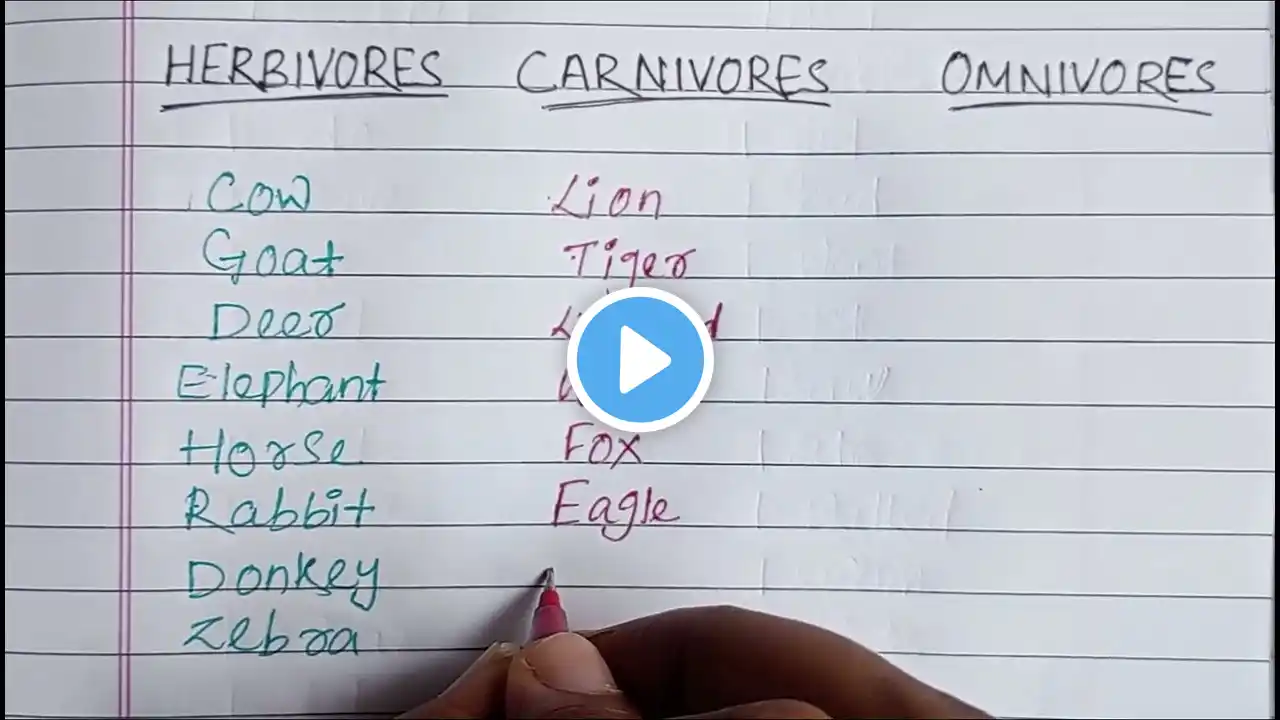 HERBIVORES CARNIVORES OMNIVORES
Cow Lion
Goat Tiger
Deer
Elephant
Horse Fox
Rabbit Eagle
Donkey
Zebra